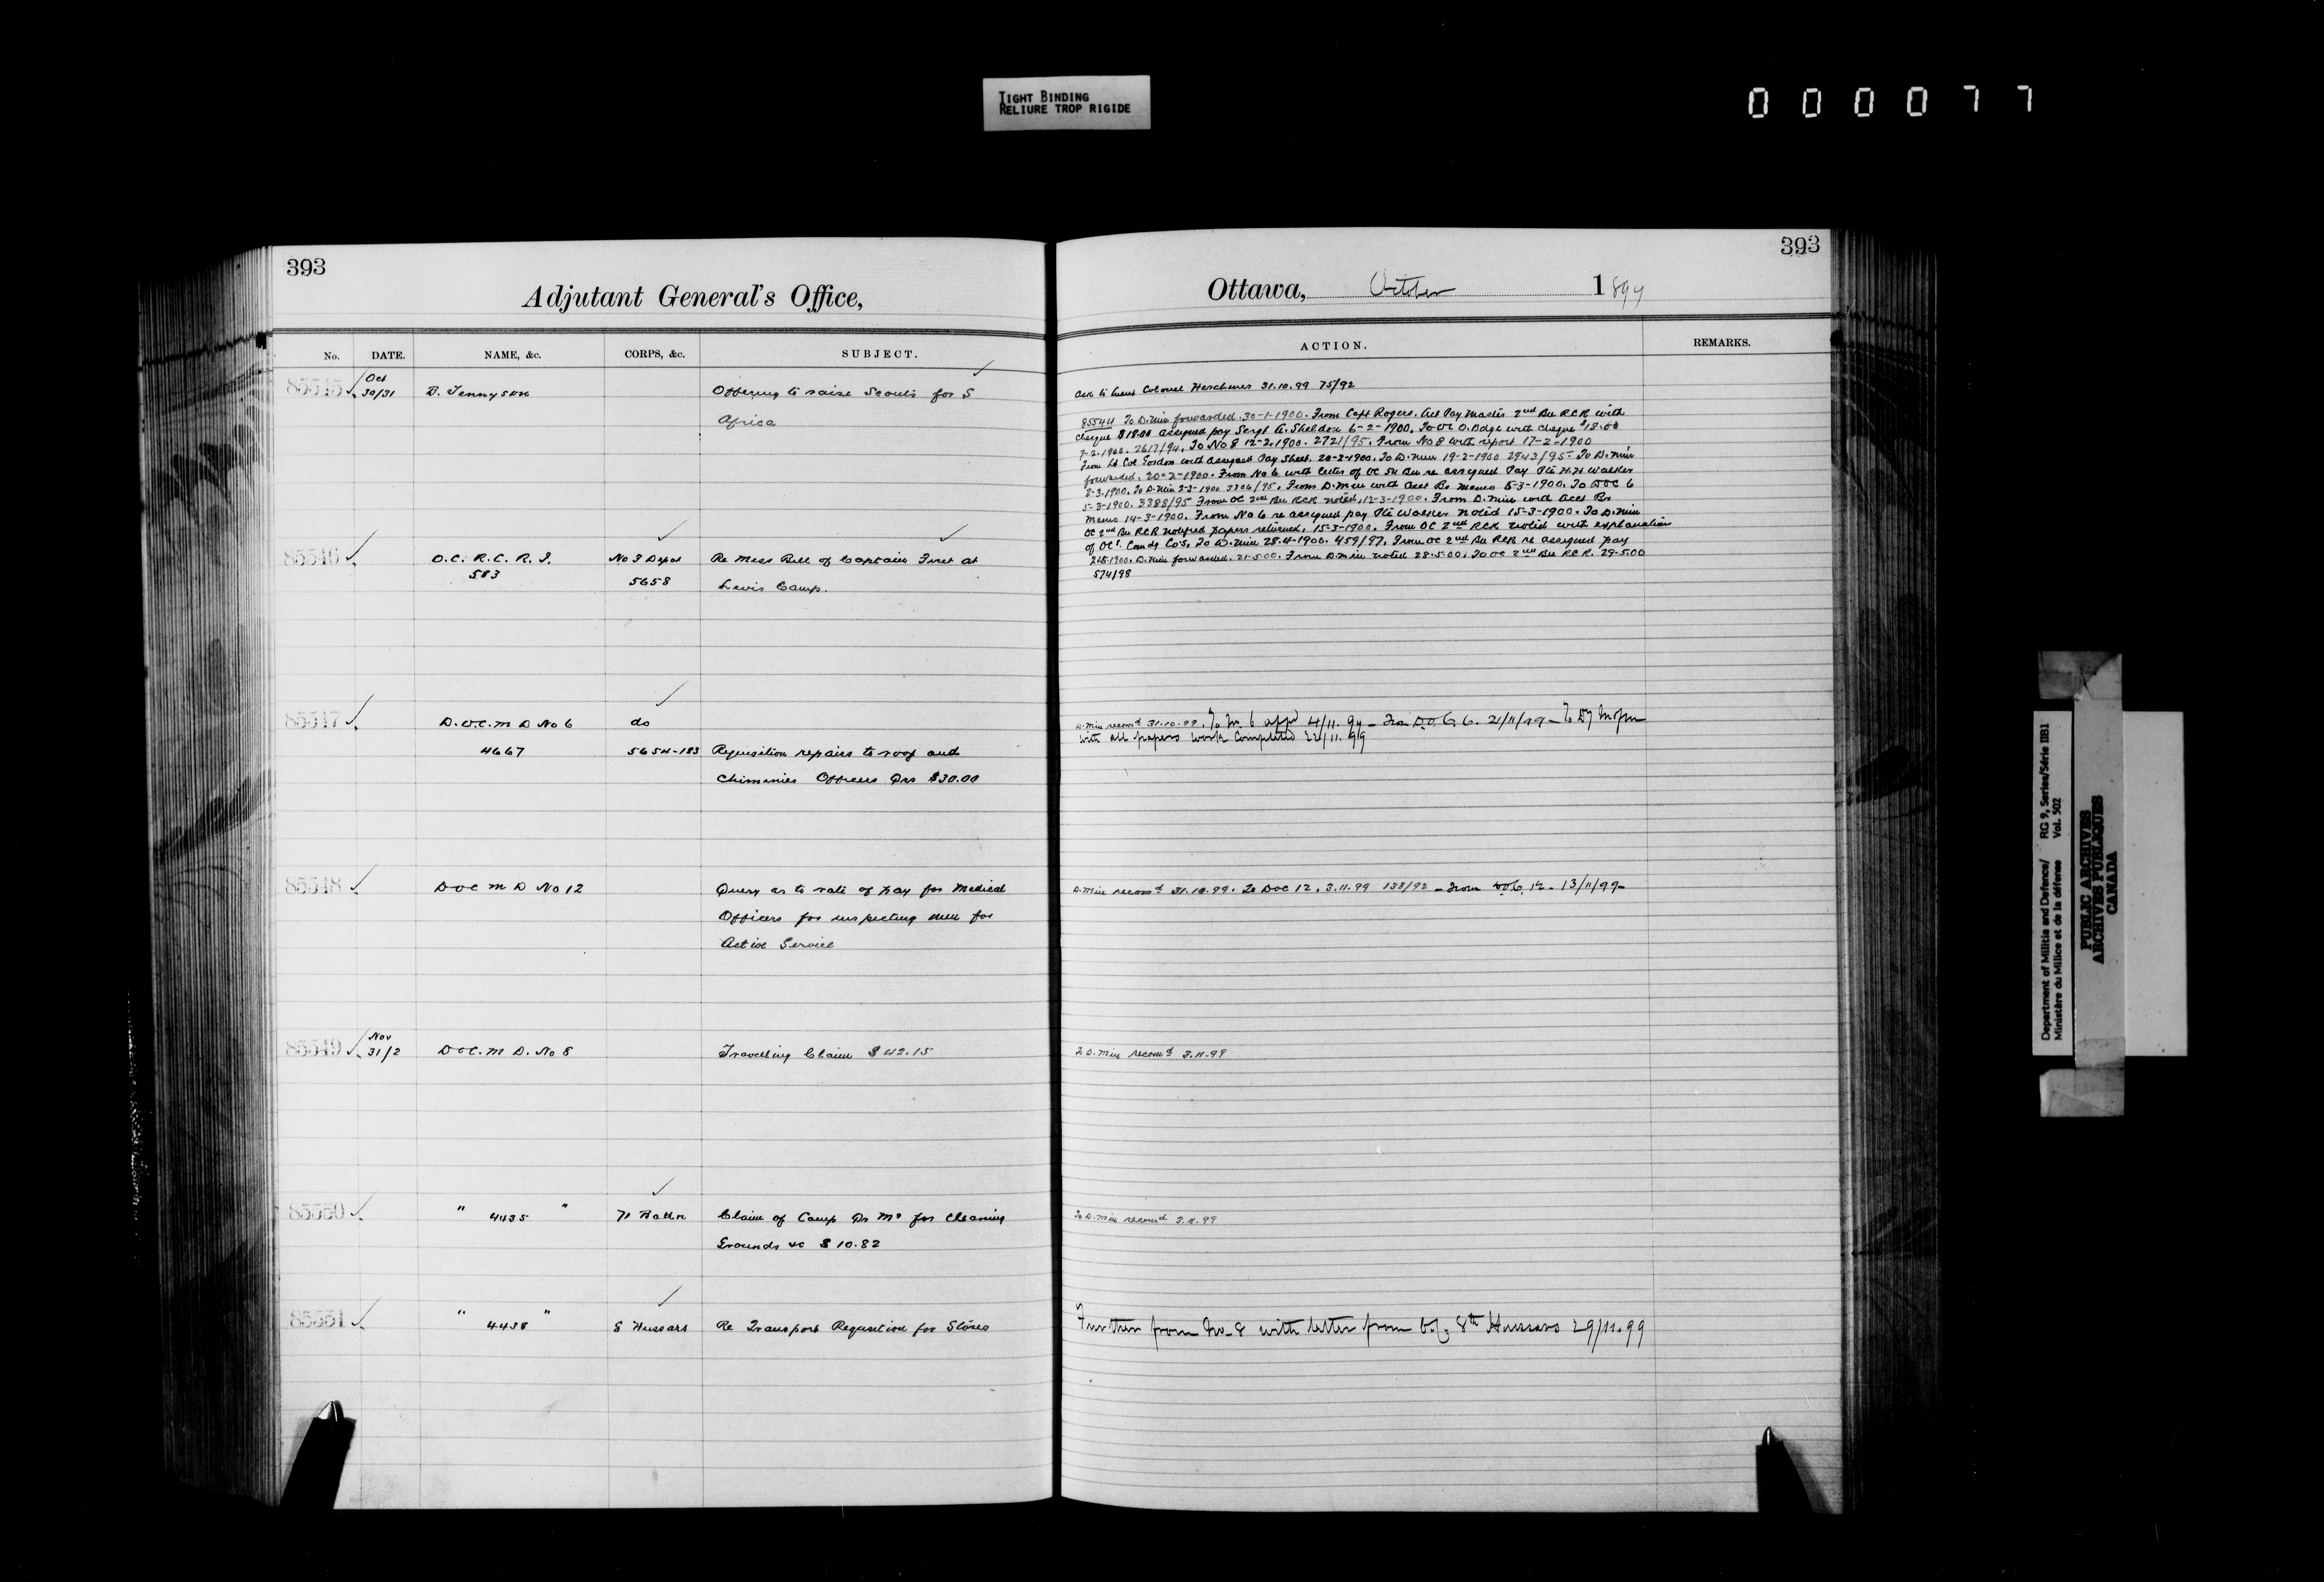 TIGHT BINDING
RELIURE TROP RIGIDE
000077
393
Adjutant General's Office,
No. DATE. NAME, &c. CORPS, &c. SUBJECT.
85545 Oct 30/31 B. Tennyson Offering to raise Scouts for S
Africa
85546 O.C. R.C.R.I. No 3 Depot Re Mess Bill of Captain at
583 5658 Levis Camp.
85547 D.O.C. M D No 6 do
4667 5654-183 Requisition repairs to roof and
Chimnies Officers Qrs $30.00
85548 DOC M D No 12 Query as to rate of pay for Medical
Officers for inspecting men for
Active Service
85549 Nov 31/2 DOC. M D. No 8 Travelling Claim $42.15
85550 " 4435 " 71 Battn Claim of Camp Qr Mr for Cleaning
Grounds &c $10.82
85551 " 4438 " 8 Hussars Re Transport Requisition for Stores
393
Ottawa, October 1899
ACTION. REMARKS.
Ack to Lieut Colonel Herchmer 31.10.99 75/92
85544 To D. Min forwarded. 30-1-1900. From Capt Rogers. Act Pay Master 2nd Bn RCR with
cheque $18.00 assigned pay Sergt A. Sheldon 6-2-1900. To OC O. Bdge with cheque $18.00
7-2-1900. 2617/94. To No 8 12-2-1900. 2721/95. From No 8 with report 17-2-1900
From Lt Col Gordon with Assigned Pay Sheet. 20-2-1900. To D. Min 19-2-1900 2943/95 To D. Min
forwarded. 20-2-1900. From No 6 with letter of OC Bn re assigned Pay Pte H.H Walker
2-3-1900. To D. Min 2-3-1900 3306/95. From D. Min with Acct Br memo 5-3-1900. To DOC 6
5-3-1900. 3388/95 From OC 2nd Bn RCR noted. 12-3-1900. From D. Min with Acct Br
Memo 14-3-1900. From No 6 re assigned pay Pte Walker noted 15-3-1900. To D. Min
OC 2nd Bn RCR notified papers returned. 15-3-1900. From OC 2nd RCR noted with explanation
of OCs. Comdg Co's. To D. Min 28-4-1900. 459/97. From OC 2nd Bn RCR re assigned pay
21-5-1900. D. Min forwarded. 21-5-00. From D. Min noted 28-5-00. To OC 2nd Bn RCR. 29-5-00
574/98
D. Min recomd 31.10.99. To No. 6 appd 4/11.99 - From D.O.C. 6. 21/11/99 - To Dy
with all papers work completed 22/11.99
D. Min recomd 31.10.99. To DOC 12. 3.11.99 138/92 - From DOC. 12 - 13/11/99 -
To D. Min recomd 3.11.99
To D. Min recomd 3.11.99
Further from No. 8 with letter from O.C. 8th Hussars 29/11.99
Department of Militia and Defence/ RG 9, Series/Série IIB1
Ministère du Milice et de la défense Vol. 502
PUBLIC ARCHIVES
ARCHIVES PUBLIQUES
CANADA